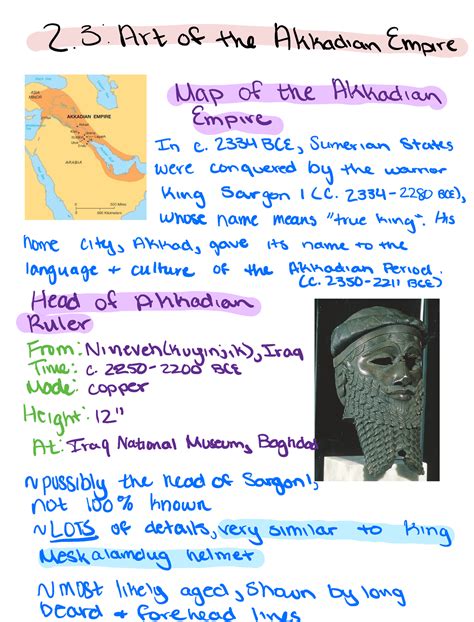 2.3: Art of the Akkadian Empire
Map of the Akkadian
Empire
ASIA
MINOR
AKKADIAN EMPIRE
ARABIA
In c. 2334 BCE, Sumerian States
were conquered by the warrior
King Sargon I (c. 2334-2280 BCE),
whose name means "true king". His
home city, Akkad, gave its name to the
language + culture of the Akkadian Period.
(c. 2350-2211 BCE)
Head of Akkadian
Ruler
From: Nineveh (Kuyinjik), Iraq
Time: c. 2250-2200 BCE
Made: copper
Height: 12"
At: Iraq National Museum, Baghdad
~possibly the head of Sargon I,
not 100% known
~LOTS of details, very similar to King
Meskalamdug helmet
~most likely aged, shown by long
beard + forehead lines